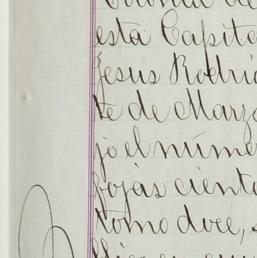 Colonia de
esta Capita
Jesus Rodrig
te de Marzo
jo el núme
fojas ciento
tomo doce,